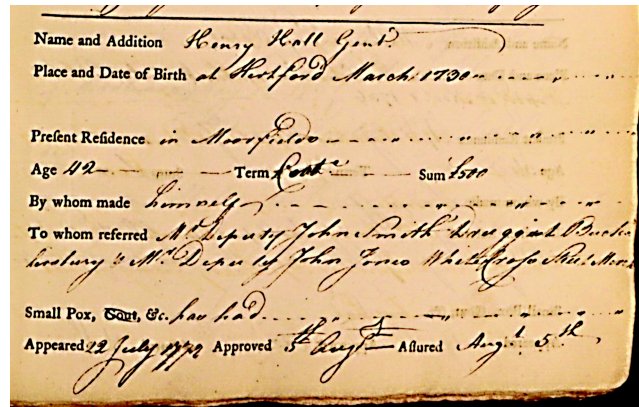 Name and Addition Henry Hall Gent.
Place and Date of Birth at Hertford March 1730
Present Residence in Moorfields
Age 42 Term Cont.e Sum £500
By whom made himself
To whom referred Mr. Deputy John Smith Druggist Buck
lersbury & Mr. Deputy John Jones White Cross Street
Small Pox, Gout, &c. has had
Appeared 22 July 1772 Approved 5th Augt. Assured Augt 5th